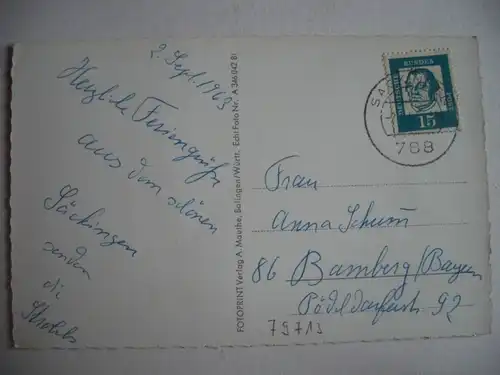 2. Sept. 1963
Herzliche Feriengrüße
aus dem schönen
Säckingen
senden
die
Strobels
FOTOPRINT Verlag A. Mauthe, Balingen/Württ. Echt Foto Nr. A 366 042 Bl
DEUTSCHE BUNDESPOST
15
788
Frau
Anna Schum
86 Bamberg/Bayern
Pödeldorferstr. 92
79713